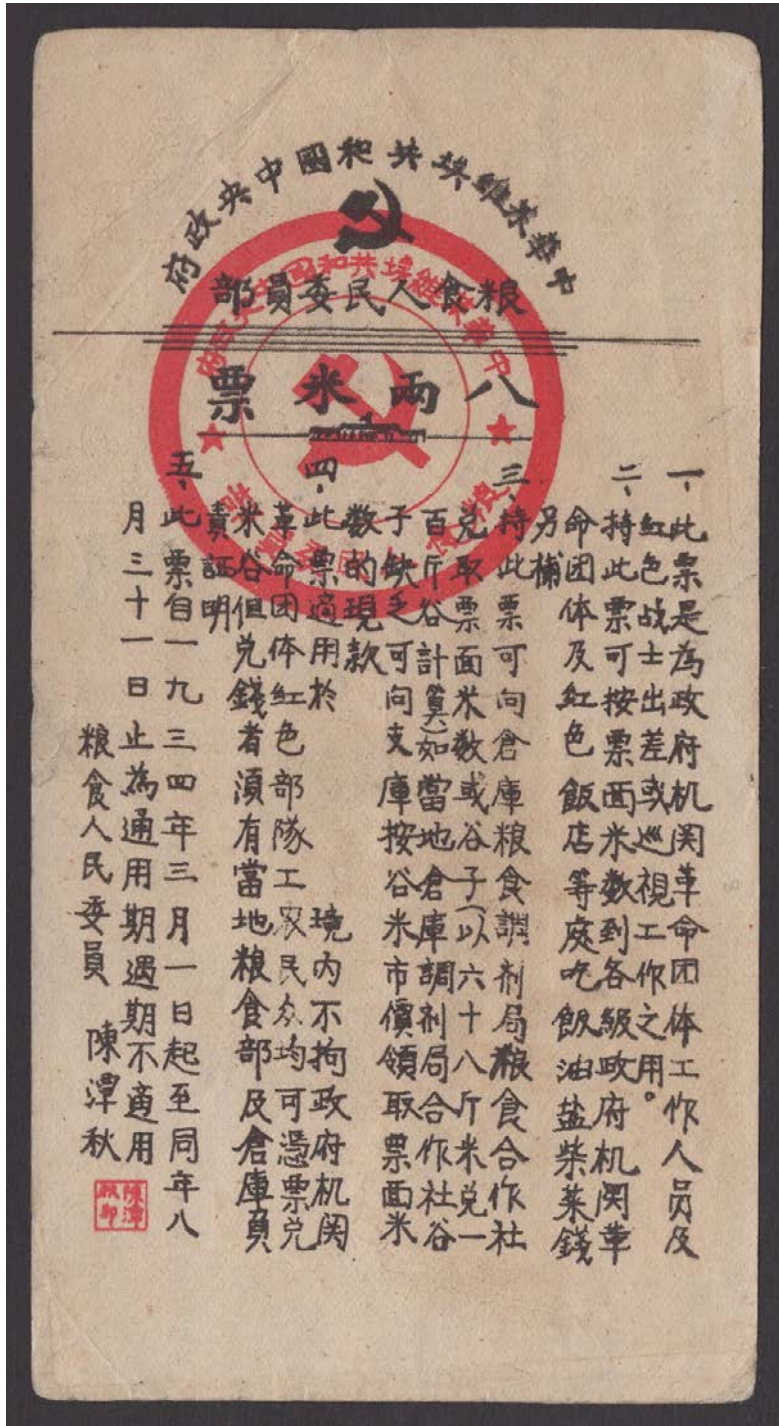 中華苏維埃共和國中央政府
粮食人民委員部
八兩米票
一、此票是為政府机関革命团体工作人员及
紅色战士出差或巡視工作之用。
二、持此票可按票面米数到各級政府机関革
命团体及紅色飯店等處吃飯油盐柴菜錢
另補
三、持此票可向倉庫粮食調剂局粮食合作社
兑取票面米数或谷子(以六十八斤米兑一
百斤谷計算)如當地倉庫調剂局合作社谷
子缺乏可向支庫按谷米市價領取票面米
数的現款
四、此票適用於 境内不拘政府机関
革命团体紅色部隊工农民众均可憑票兑
米谷但兑錢者須有當地粮食部及倉庫負
責証明
五、此票自一九三四年三月一日起至同年八
月三十一日止為通用期過期不適用
粮食人民委員 陳潭秋
陳潭秋印
中華苏維埃共和國中央政府